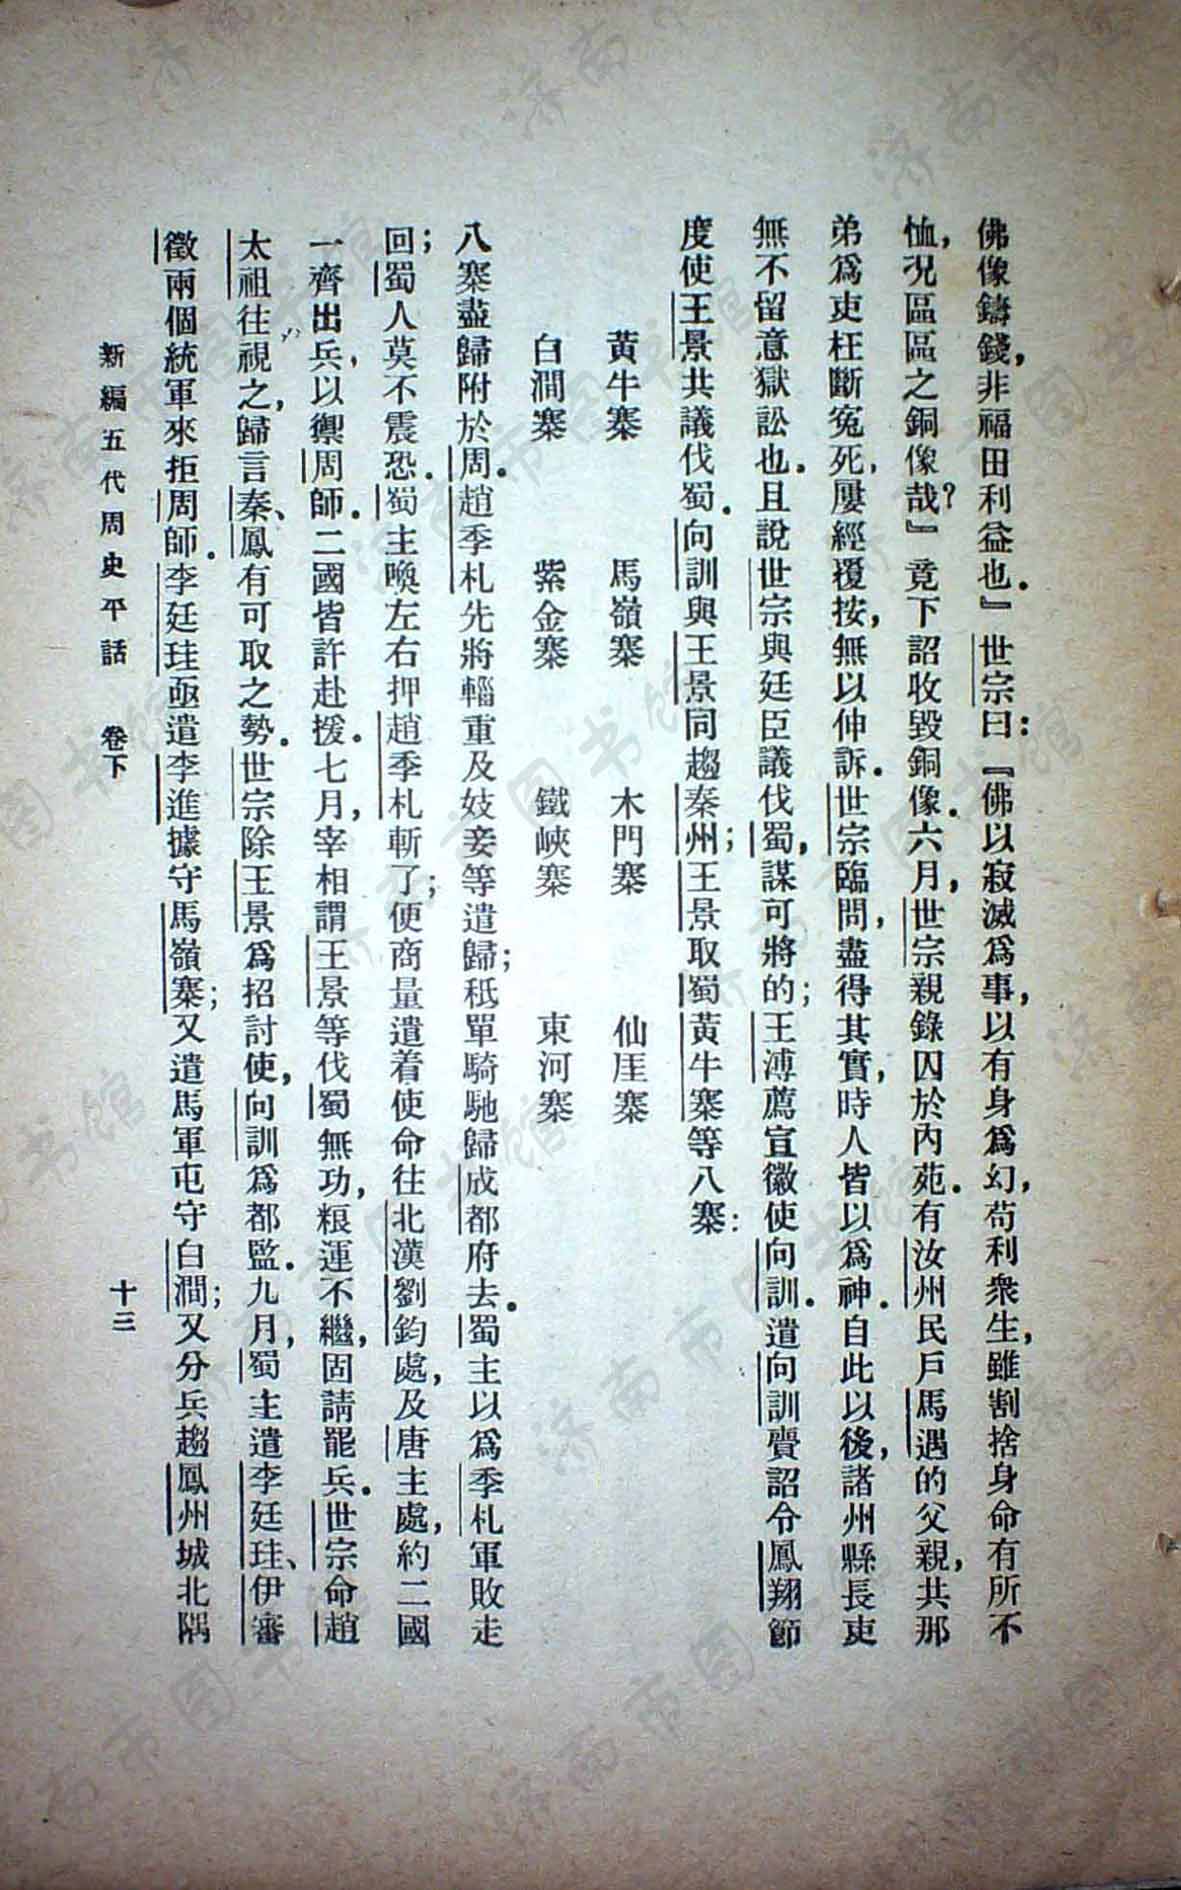 佛像鑄錢，非福田利益也。』世宗曰：『佛以寂滅爲事，以有身爲幻，苟利衆生，雖割捨身命有所不
恤，況區區之銅像哉？』竟下詔收毀銅像。六月，世宗親錄囚於內苑。有汝州民戶馬遇的父親，共那
弟爲吏枉斷冤死，屢經覆按，無以伸訴。世宗臨問，盡得其實，時人皆以爲神。自此以後，諸州縣長吏
無不留意獄訟也。且說世宗與廷臣議伐蜀，謀可將的；王溥薦宣徽使向訓。遣向訓賫詔令鳳翔節
度使王景共議伐蜀。向訓與王景同趨秦州；王景取蜀黃牛寨等八寨：
黃牛寨　馬嶺寨　木門寨　仙厓寨
白澗寨　紫金寨　鐵峽寨　東河寨
八寨盡歸附於周。趙季札先將輜重及妓妾等遣歸；秖單騎馳歸成都府去。蜀主以爲季札軍敗走
回；蜀人莫不震恐。蜀主喚左右押趙季札斬了；便商量遣着使命往北漢劉鈞處，及唐主處，約二國
一齊出兵，以禦周師。二國皆許赴援。七月，宰相謂王景等伐蜀無功，粮運不繼，固請罷兵。世宗命趙
太祖往視之，歸言秦、鳳有可取之勢。世宗除王景爲招討使，向訓爲都監。九月，蜀主遣李廷珪、伊審
徵兩個統軍來拒周師。李廷珪亟遣李進據守馬嶺寨；又遣馬軍屯守白澗；又分兵趨鳳州城北隅
新編五代周史平話　卷下　十三
济南市图书馆